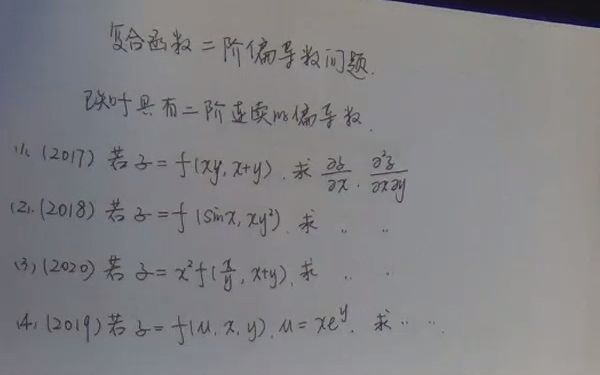 复合函数二阶偏导数问题.
已知f具有二阶连续的偏导数.
(1). (2017) 若 z = f(xy, x+y). 求 ∂z/∂x . ∂²z/∂x∂y
(2). (2018) 若 z = f(sinx, xy²). 求 〃 〃
(3) (2020) 若 z = x²f(x/y, x+y). 求 〃 〃
(4) (2019) 若 z = f(u, x, y). u = xe^y. 求 〃 〃